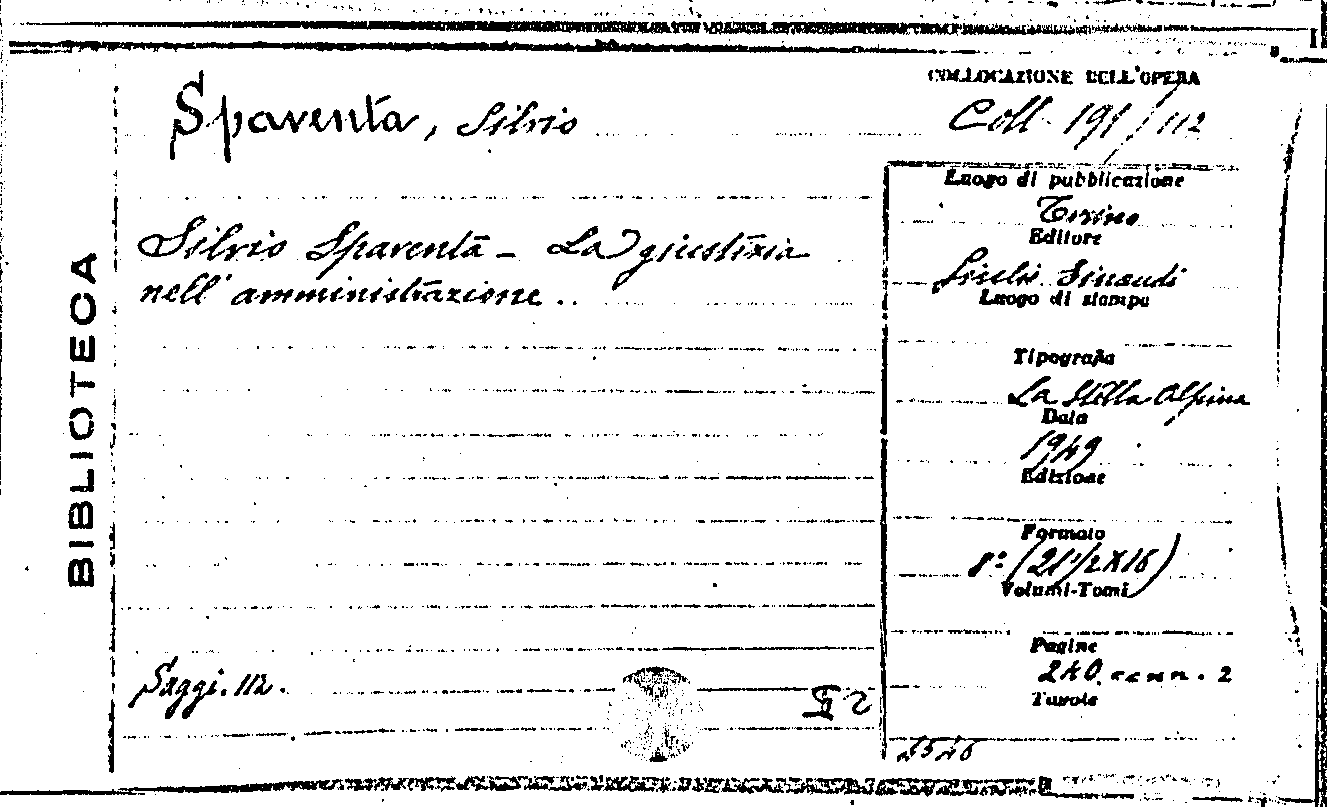 COLLOCAZIONE DELL'OPERA
Spaventa, Silvio
Coll. 191/112
Luogo di pubblicazione
Torino
Silvio Spaventa - La giustizia
nell'amministrazione..
Editore
Einaudi
Luogo di stampa
Tipografia
La Stella Alpina
Data
1949
Edizione
Formato
8º (21 1/2 X 16)
Volumi-Tomi
Pagine
240 2
Tavole
Saggi. 112.
BIBLIOTECA